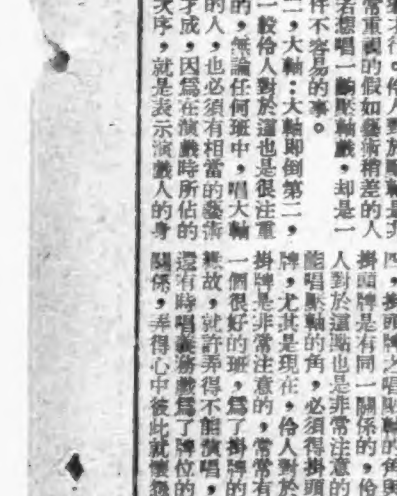 才得。伶人對於壓軸是非
常重視的假如藝術稍差的人
若想唱一齣壓軸戲，却是一
件不容易的事。
二，大軸：大軸即倒第二，
一般伶人對於這也是很注重
的，無論任何班中，唱大軸
的人，也必須有相當的藝術
才成，因爲在演戲時所佔的
次序，就是表示演戲人的身
四，掛頭牌之唱壓軸的角與
掛頭牌是有同一關係的，伶
人對於這點也是非常注意的
能唱壓軸的角，必須得掛頭
牌，尤其是現在，伶人對於
掛牌是非常注意的，常常有
一個很好的班，爲了掛牌的
緣故，就許弄得不能演唱，
還有時唱義務戲爲了牌位的
關係，弄得心中彼此就懷